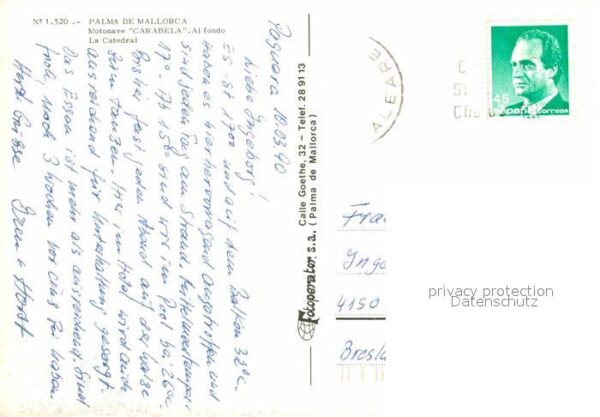 Nº 1.520.- PALMA DE MALLORCA
Motonave "CARABELA". Al fondo
La Catedral
Paguera 10.03.90
Liebe Ingeborg!
Es ist 1700 und auf dem Balkon 32°C.
Haben es hier hervorragend angetroffen und
sind jeden Tag am Strand. Mitteltemper.
17°. Ab 15° sind wir im Pool bei 26°C.
fast jeden Abend auf der
zum tanzen. Hier im Hotel wird auch
ausreichend für Unterhaltung gesorgt.
Das Essen ist mehr als ausreichend. Sind
froh, noch 3 Wochen vor uns zu haben.
Herzl. Grüsse
+ Horst
Fotoperator, s.a.
Calle Goethe, 32 - Telef. 28 91 13
( Palma de Mallorca)
ALEARE
45
correos
Fra
Inge
4150
Bresla
privacy protection
Datenschutz